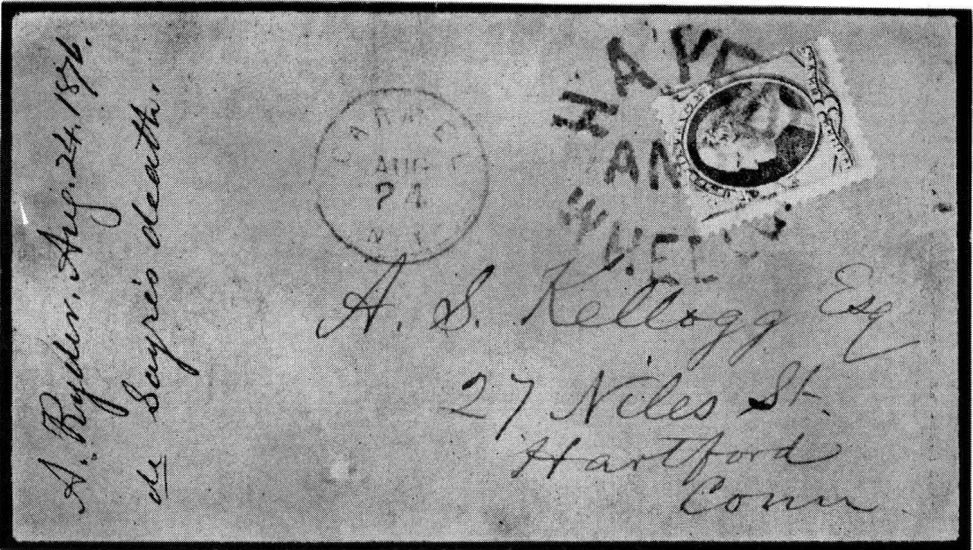 A. Ryder. Aug. 24. 1876.
de Sayre's death.
CARMEL
AUG
24
N.Y.
HAYE
AN
WHEEL
A. S. Kellogg Esq
27 Niles St.
Hartford
Conn